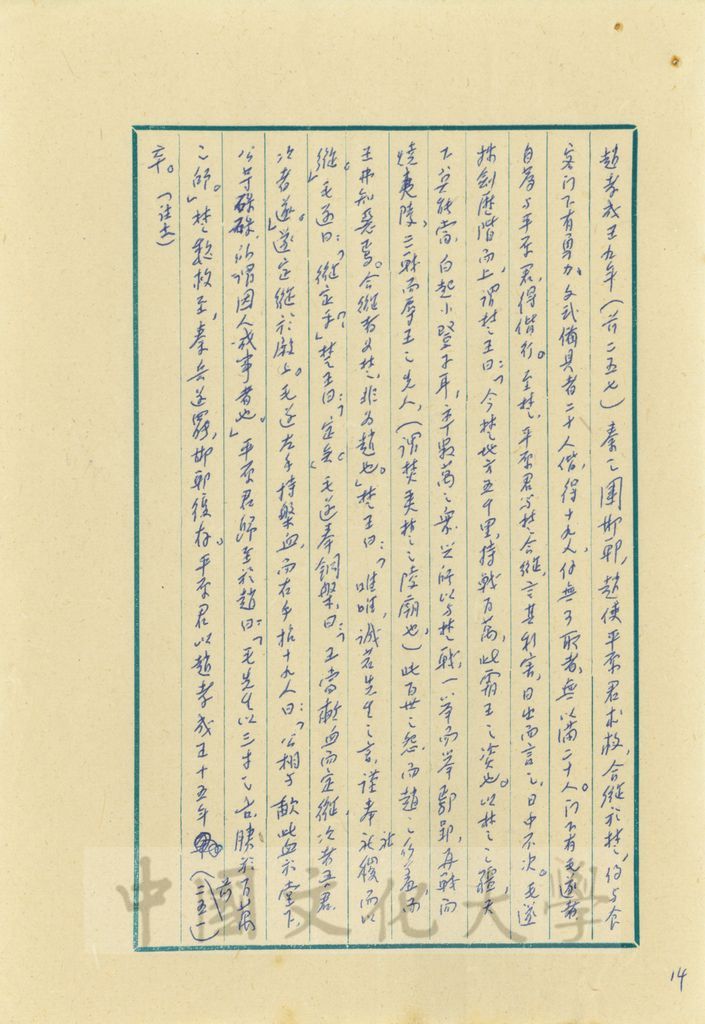 趙孝成王九年(前二五七)秦之圍邯鄲,趙使平原君求救,合縱於楚,約與食
客門下有勇力文武備具者二十人偕,得十九人,餘無可取者,無以滿二十人。門下有毛遂者,
自薦與平原君得偕行。至楚,平原君與楚合縱,言其利害,日出而言之,日中不決。毛遂
按劍歷階而上,謂楚王曰:「今楚地方五千里,持戟百萬,此霸王之資也。以楚之彊,天
下莫能當。白起小豎子耳,率數萬之眾,興師以與楚戰,一舉而舉鄢郢,再戰而
燒夷陵,三戰而辱王之先人,(謂焚夷楚之陵廟也)此百世之怨,而趙之所羞,而
王弗知惡焉。合縱者為楚,非為趙也。」楚王曰:「唯唯,誠若先生之言,謹奉社稷而以
縱。」毛遂曰:「縱定乎?」楚王曰:「定矣。」毛遂奉銅槃,曰:「王當歃血而定縱,次者吾君,
次者遂。」遂定縱於殿上。毛遂左手持槃血,而右手招十九人曰:「公相與歃此血於堂下,
公等碌碌,所謂因人成事者也。」平原君歸至於趙曰:「毛先生以三寸之舌,勝於百萬
之師。」楚趙救至,秦兵遂罷,邯鄲復存。平原君以趙孝成王十五年(前二五一)
卒。(註七)
14
中國文化大學